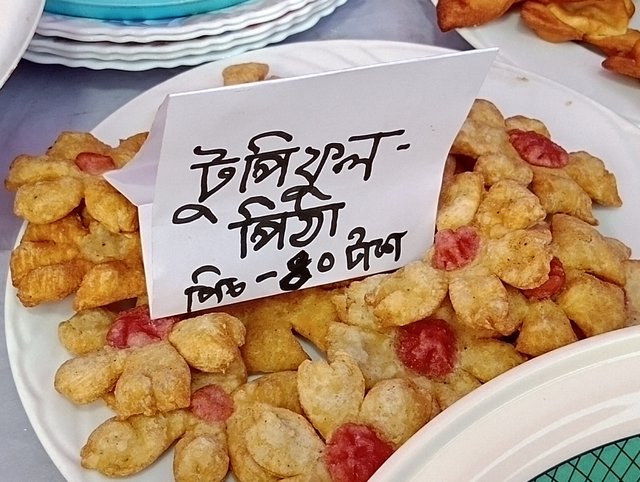 টুপিফুল-
পিঠা
পিচ - ৪০ টাকা